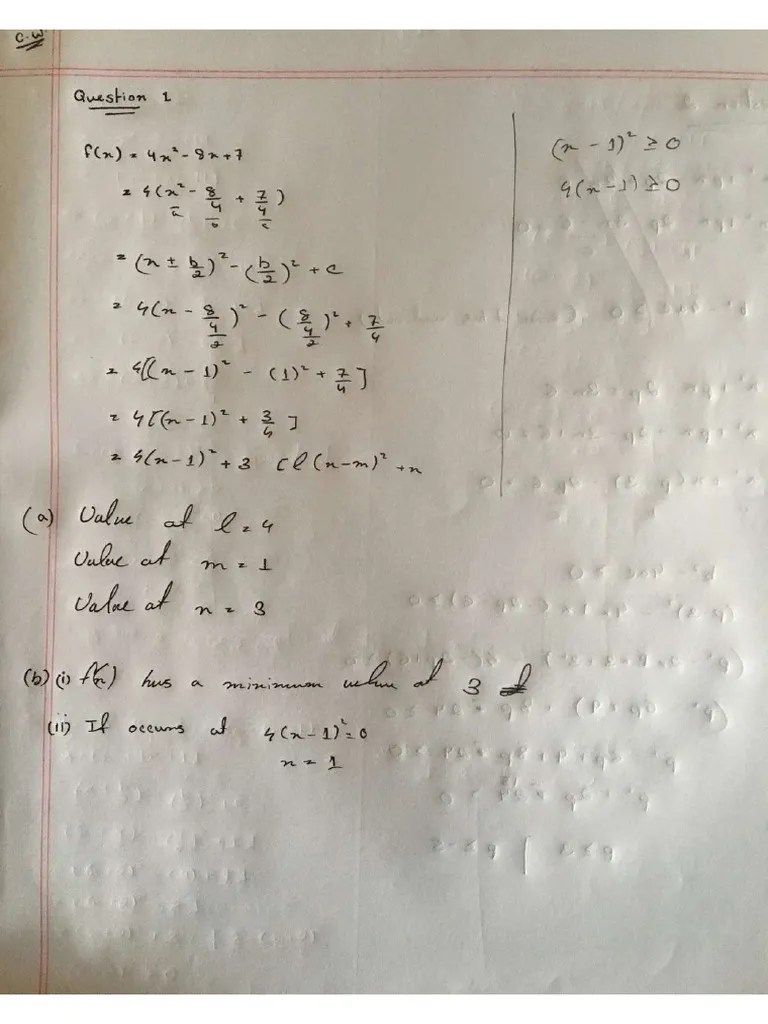 C.W
Question 1
f(x) = 4x² - 8x + 7
= 4(x² - 8/4 + 7/4)
a b c
= (x ± b/2)² - (b/2)² + c
= 4(x - 8/4/2)² - (8/4/2)² + 7/4
= 4[(x - 1)² - (1)² + 7/4]
= 4[(x - 1)² + 3/4]
= 4(x - 1)² + 3 [l(x - m)² + n
(x - 1)² ≥ 0
4(x - 1) ≥ 0
(a) Value at l = 4
Value at m = 1
Value at n = 3
(b) (i) f(x) has a minimum value at 3
(ii) It occurs at 4(x - 1)² = 0
x = 1